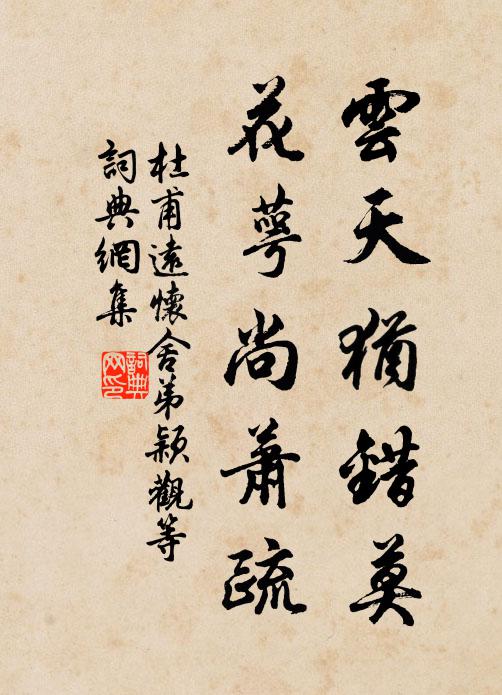 雲天猶錯莫
花萼尚蕭疏
杜甫遠懷舍弟穎觀等
詞典網集
詞典网印